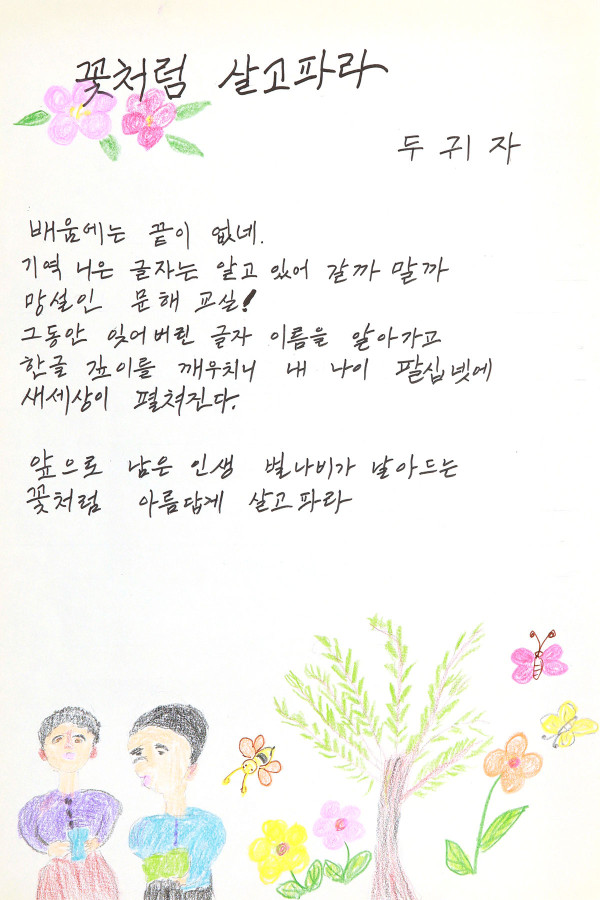 꽃처럼 살고파라
두 귀 자
배움에는 끝이 없네.
기역 니은 글자는 알고 있어 갈까 말까
망설인 문해 교실!
그동안 잊어버린 글자 이름을 알아가고
한글 깊이를 깨우치니 내 나이 팔십넷에
새세상이 펼쳐진다.
앞으로 남은 인생 벌나비가 날아드는
꽃처럼 아름답게 살고파라